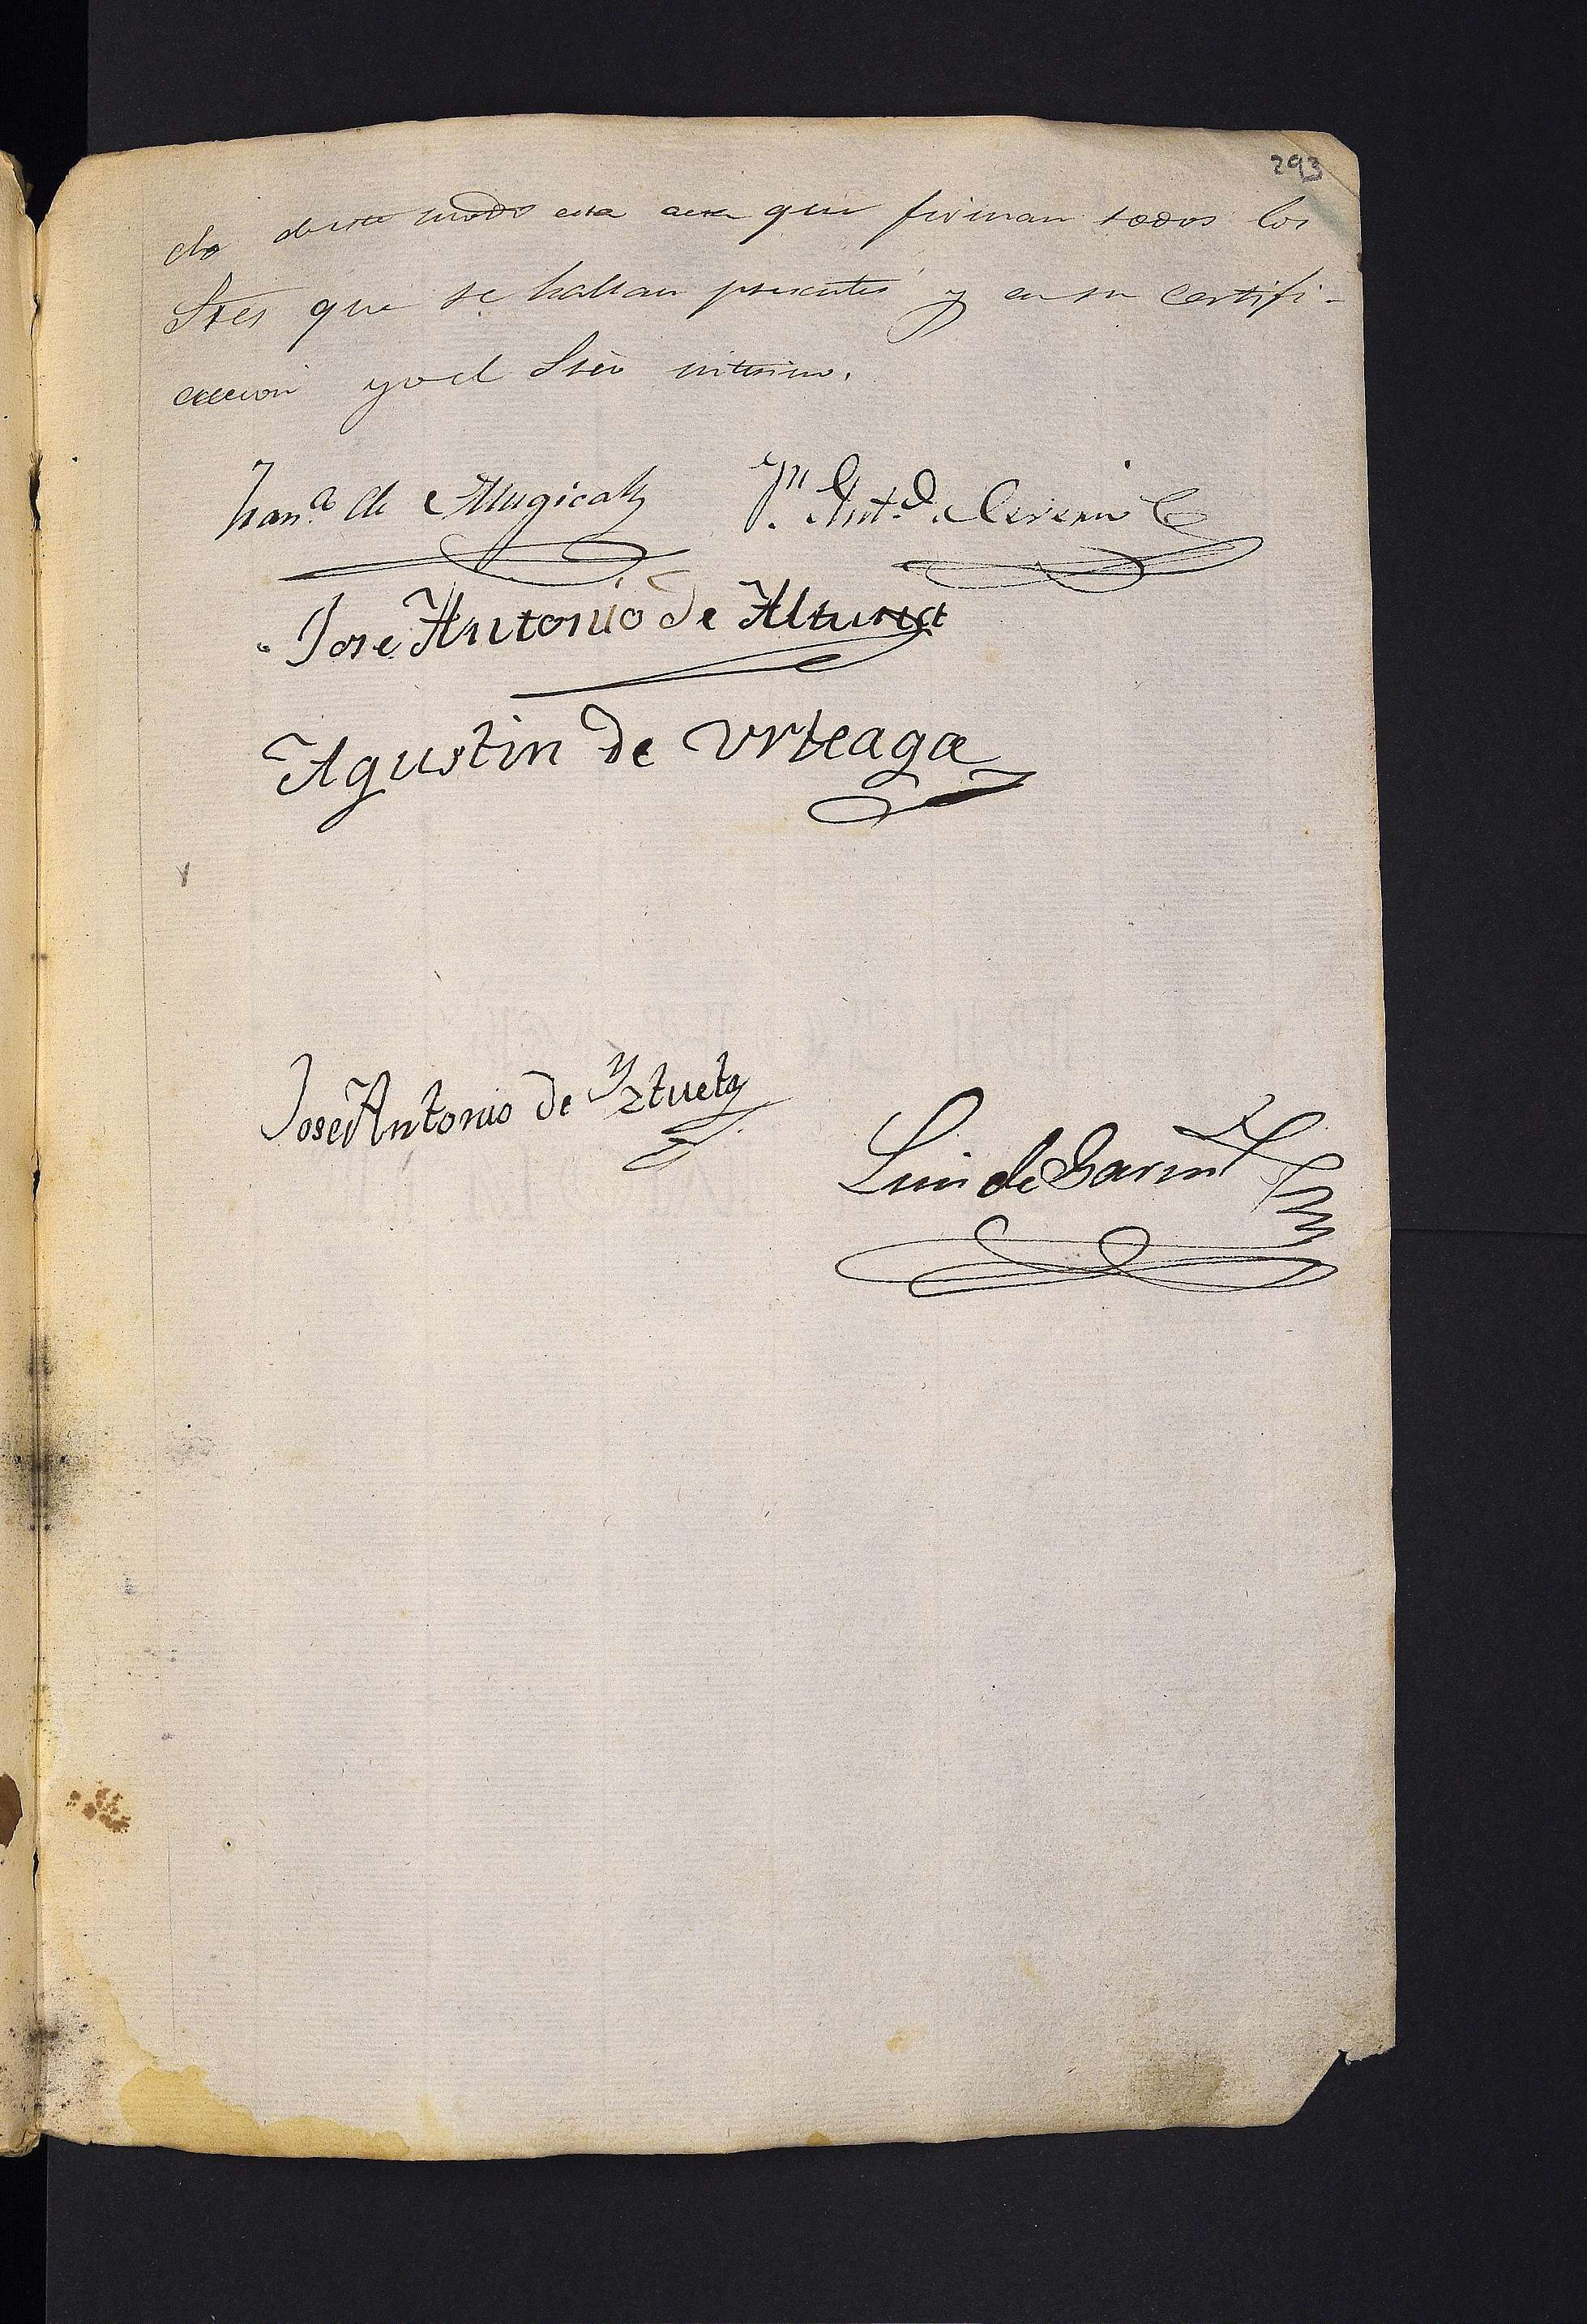 293
do de este modo esta acta que firman todos los
Sres que se hallan presentes y en su certifi-
cacion yo el Srio interino.
Fran.co de Mugica
Jose Antonio de Altuna
Agustin de Urteaga
Jose Antonio de Yztueta
Luis de